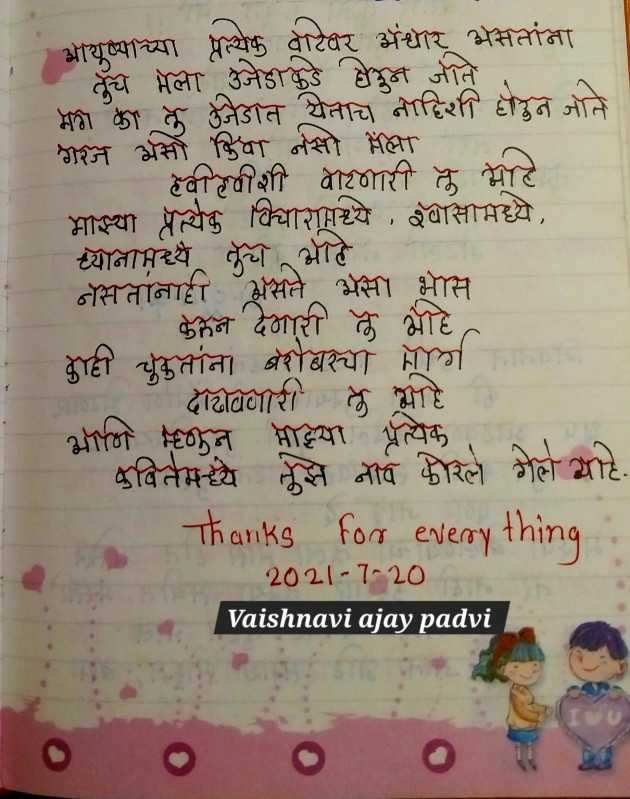 आयुष्याच्या प्रत्येक वाटेवर अंधार असतांना
तुच मला उजेडाकडे घेऊन जाते
मग का तु उजेडात येताच नाहिशी होऊन जाते
गरज असो किंवा नसो मला
हवीहवीशी वाटणारी तु आहे
माझ्या प्रत्येक विचारामध्ये, श्वासामध्ये,
ध्यानामध्ये तुच आहे
नसतांनाही असते असा भास
करून देणारी तु आहे
काही चुकतांना बरोबरचा मार्ग
दाखवणारी तु आहे
आणि म्हणुन माझ्या प्रत्येक
कवितेमध्ये तुझे नाव कोरले गेले आहे.
Thanks for everything
2021-7-20
Vaishnavi ajay padvi
I U